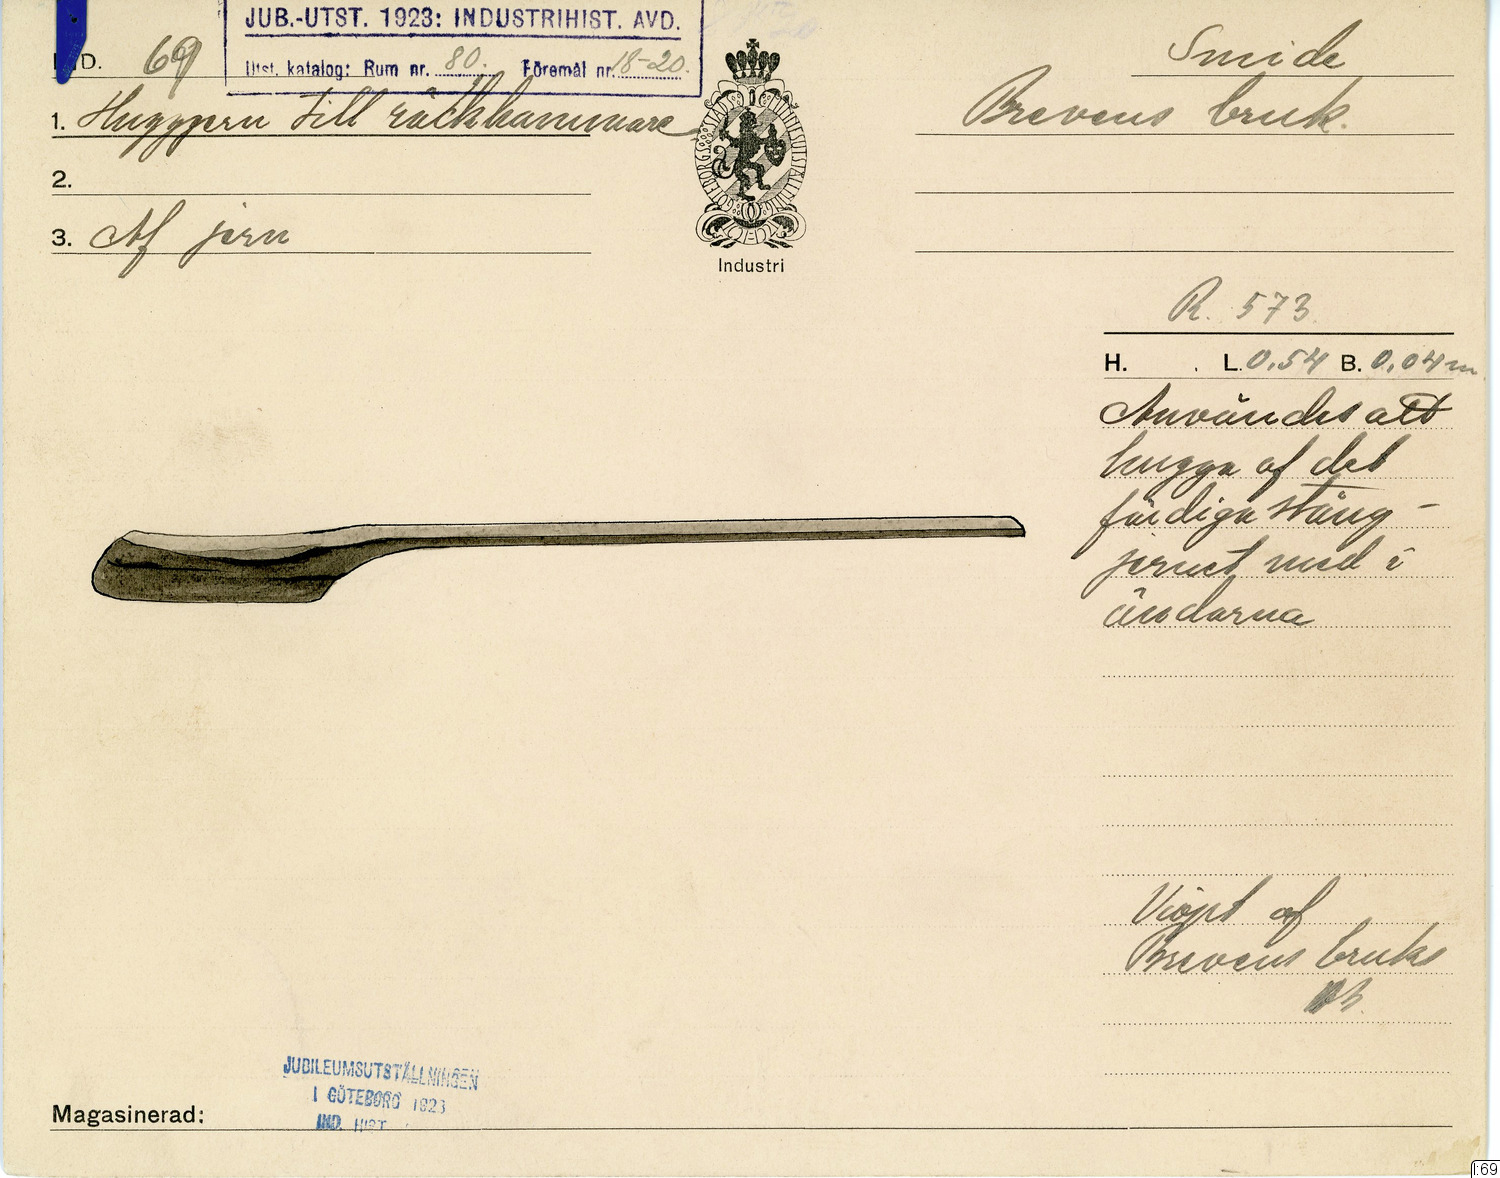 JUB.-UTST. 1923: INDUSTRIHIST. AVD.
Utst. katalog: Rum nr. 80. Föremål nr. 18-20.
IND. 69
Smide
1. Huggjern till räckhammare
Brevens bruk.
2.
3. Af jern
GÖTEBORGS STADS MINNESUTSTÄLLNING
Industri
R. 573
H. L. 0,54 B. 0,04 m
Användes att
hugga af det
färdiga stång-
jernet med i
ändarna
Brevens bruks
JUBILEUMSUTSTÄLLNINGEN
I GÖTEBORG 1923
IND. HIST.
Magasinerad:
I:69